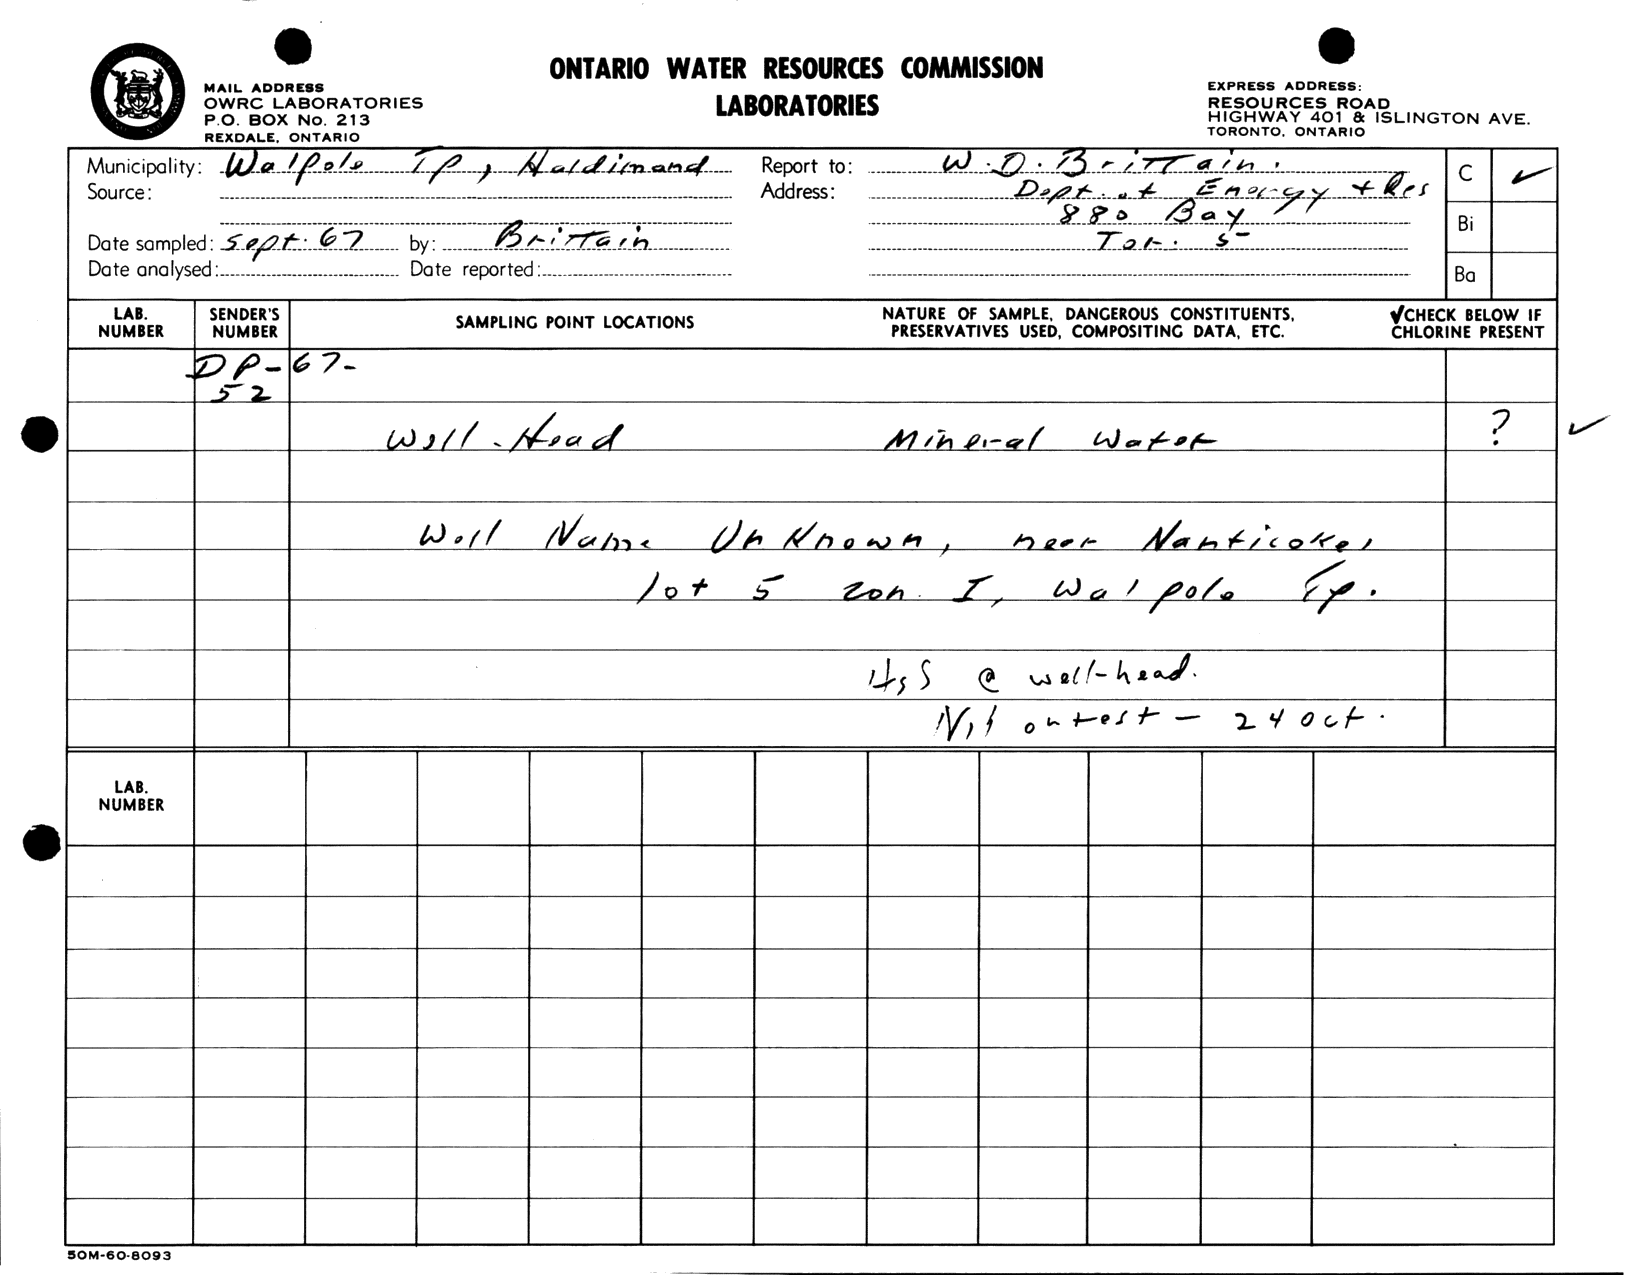 ONTARIO WATER RESOURCES COMMISSION
LABORATORIES
MAIL ADDRESS
OWRC LABORATORIES
P.O. BOX No. 213
REXDALE, ONTARIO
EXPRESS ADDRESS:
RESOURCES ROAD
HIGHWAY 401 & ISLINGTON AVE.
TORONTO, ONTARIO
Municipality: Walpole Tp, Haldimand
Source:
Date sampled: Sept. 67 by: Brittain
Date analysed: Date reported:
Report to: W. D. Brittain.
Address: Dept. of Energy + Res
880 Bay
Tor. 5
C ✓
Bi
Ba
LAB. NUMBER
SENDER'S NUMBER
SAMPLING POINT LOCATIONS
NATURE OF SAMPLE, DANGEROUS CONSTITUENTS,
PRESERVATIVES USED, COMPOSITING DATA, ETC.
✓CHECK BELOW IF
CHLORINE PRESENT
DP-67-
52
Well-Head Mineral Water ? ✓
Well Name Unknown, near Nanticoke,
lot 5 con. I, Walpole Tp.
H2S @ well-head.
Nil on test - 24 Oct.
LAB.
NUMBER
50M-60-8093